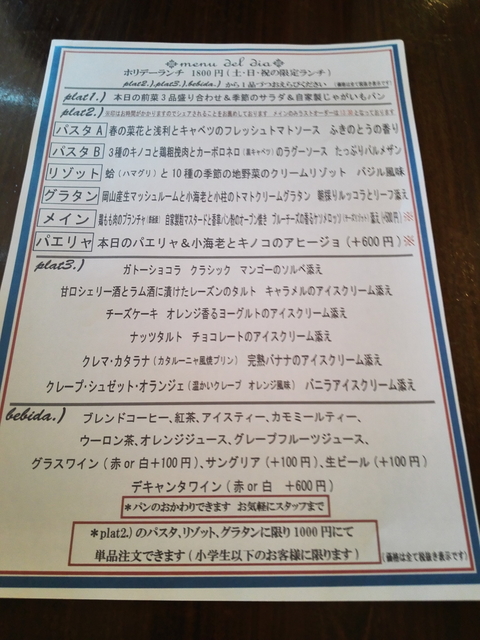 menu del dia
ホリデーランチ 1800円(土・日・祝の限定ランチ)
plat2.),plat3.),bebida.) から1品づつおえらびください (価格は全て税抜き表示です)
plat1.) 本日の前菜3品盛り合わせ&季節のサラダ&自家製じゃがいもパン
plat2.) ※印はお時間がかかりますのでシェアされることをお薦めしております メインのみラストオーダーは
となっております
パスタA 春の菜花と浅利とキャベツのフレッシュトマトソース ふきのとうの香り
パスタB 3種のキノコと鶏粗挽肉とカーボロネロ(黒キャベツ)のラグーソース たっぷりパルメザン
リゾット 蛤(ハマグリ)と10種の季節の地野菜のクリームリゾット バジル風味
グラタン 岡山産生マッシュルームと小海老と小柱のトマトクリームグラタン 朝採りルッコラとリーフ添え
メイン 鶏もも肉のプランチャ(鉄板焼) 自家製粒マスタードと香草パン粉のオーブン焼き ブルーチーズの香るケソメロッソ
添え(+600円)※
パエリャ 本日のパエリャ&小海老とキノコのアヒージョ(+600円)※
plat3.)
ガトーショコラ クラシック マンゴーのソルベ添え
甘口シェリー酒とラム酒に漬けたレーズンのタルト キャラメルのアイスクリーム添え
チーズケーキ オレンジ香るヨーグルトのアイスクリーム添え
ナッツタルト チョコレートのアイスクリーム添え
クレマ・カタラナ(カタルーニャ風焼プリン) 完熟バナナのアイスクリーム添え
クレープ・シュゼット・オランジェ(温かいクレープ オレンジ風味) バニラアイスクリーム添え
bebida.)
ブレンドコーヒー、紅茶、アイスティー、カモミールティー、
ウーロン茶、オレンジジュース、グレープフルーツジュース、
グラスワイン(赤or白+100円)、サングリア(+100円)、生ビール(+100円)
デキャンタワイン(赤or白 +600円)
*パンのおかわりできます お気軽にスタッフまで
*plat2.)のパスタ、リゾット、グラタンに限り1000円にて
単品注文できます(小学生以下のお客様に限ります)
(価格は全て税抜き表示です)